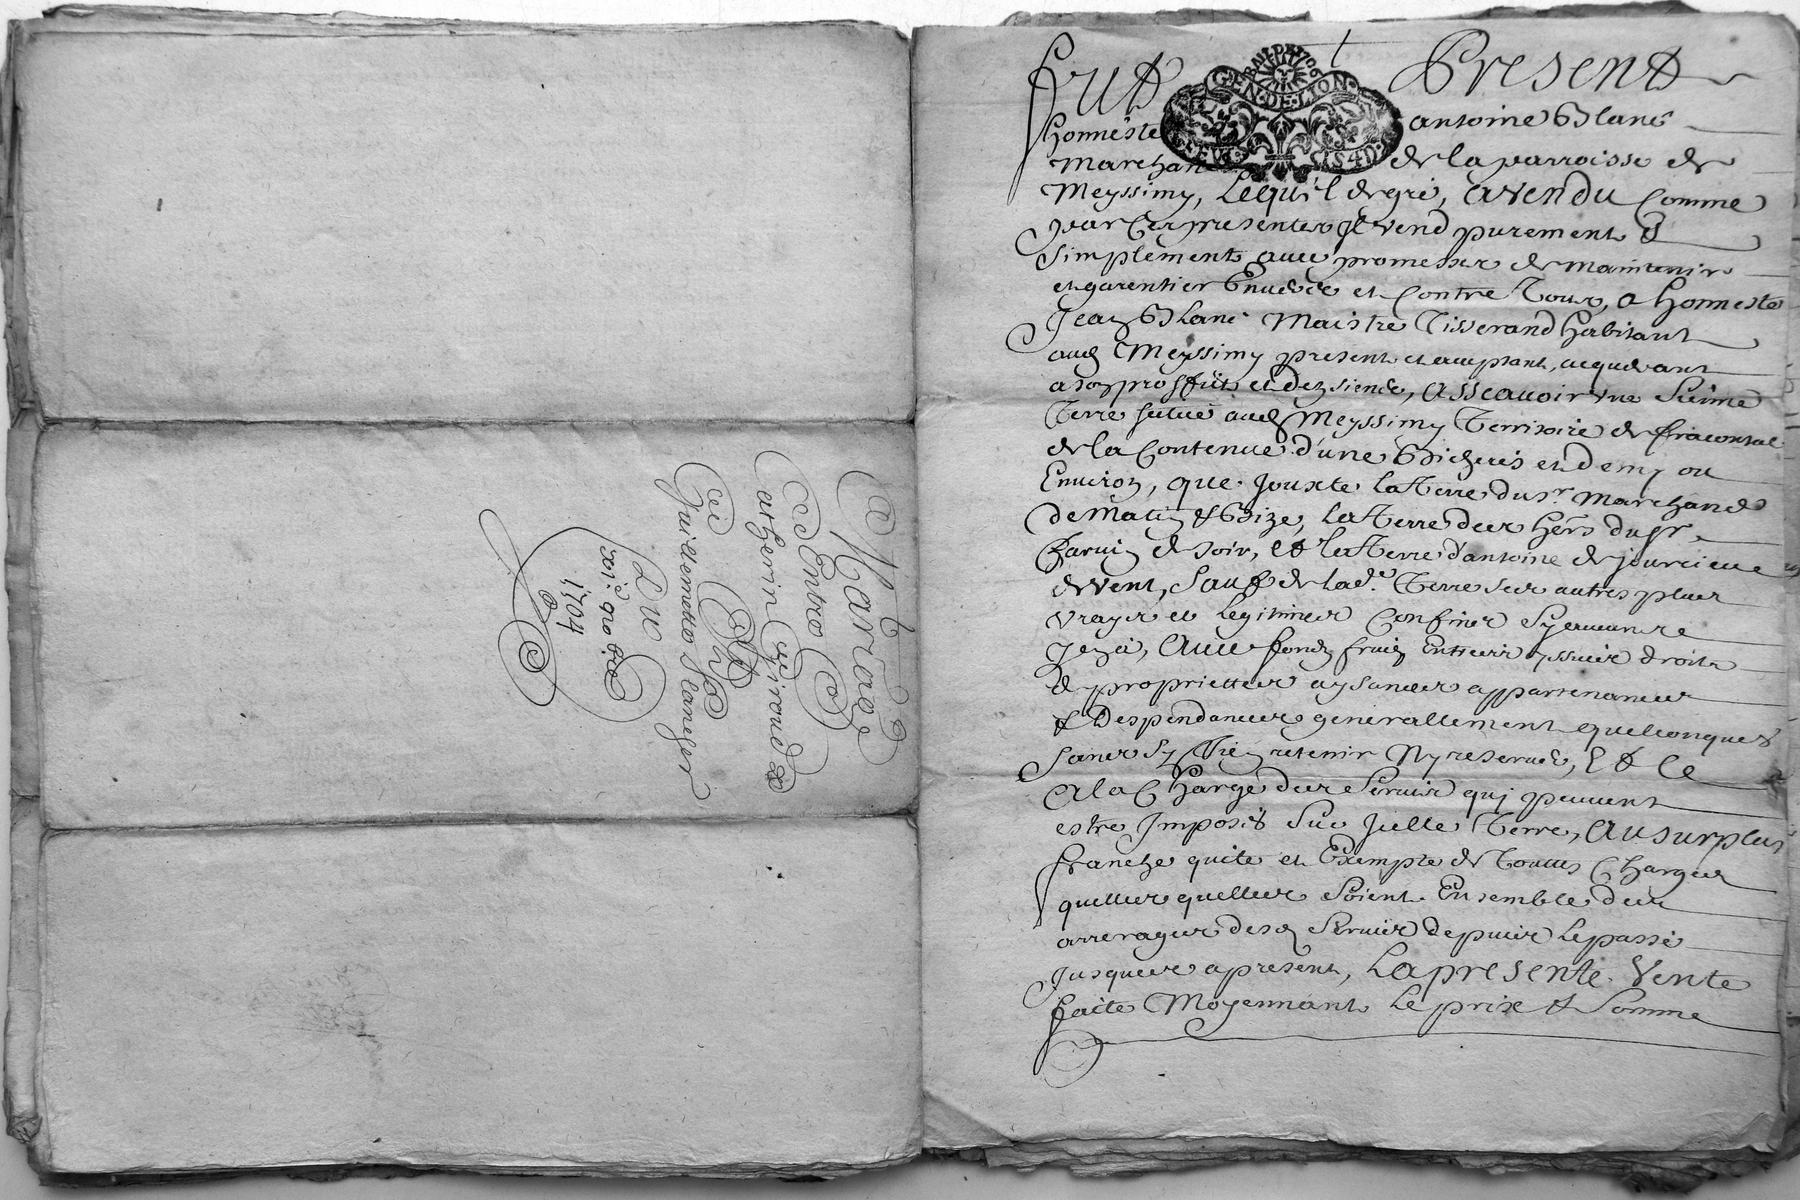 Mariage
Entre
Catherin Giroud &
Et
Guillemette Blanchet
Du
1704
BAIL DE 1706
GEN·DE·LION
Fut Present
honneste antoine Blanc
Marchant de la parroisse de
Meyssimy, Lequel de gré, a vendu Comme
par Ces presentes Il vend purement &
Simplement avec promesses de maintenir
et garentier Envers et Contre Tous, a Honneste
Jean Blanc Maistre Tisserand habitant
aud Meyssimy present et acceptant, acquerant
a son proffit et des siens, asscavoir une Sienne
Terre situé aud Meyssimy Territoire de fracontal
de la Contenue d'une Bicheré et demy ou
Environ, que Jouxte la Terre du sr Marchand
de Matin & Bize, la Terre des hers du sr
de soir, & la Terre d'antoine de jourcieue
de vent, Sauf de lad. Terre ses autres plus
vrays et legitimes Confins Sy aucuns
y en a, avec fondz fruicz Entrées yssues droits
de proprietter aysances appartenances
& Despendances generallement quelconques
Sans Sy Rien retenir Ny reserver, Et Ce
A la Charge des Servis qui peuvent
estre Imposés Sur Jcelle Terre, Au surplus
franche quite et Exempte de Touttes Charges
quelles quelles Soient Ensemble des
arrerages desd Servis depuis le passé
Jusques a present, La presente Vente
faite Moyennant Le prix & Somme